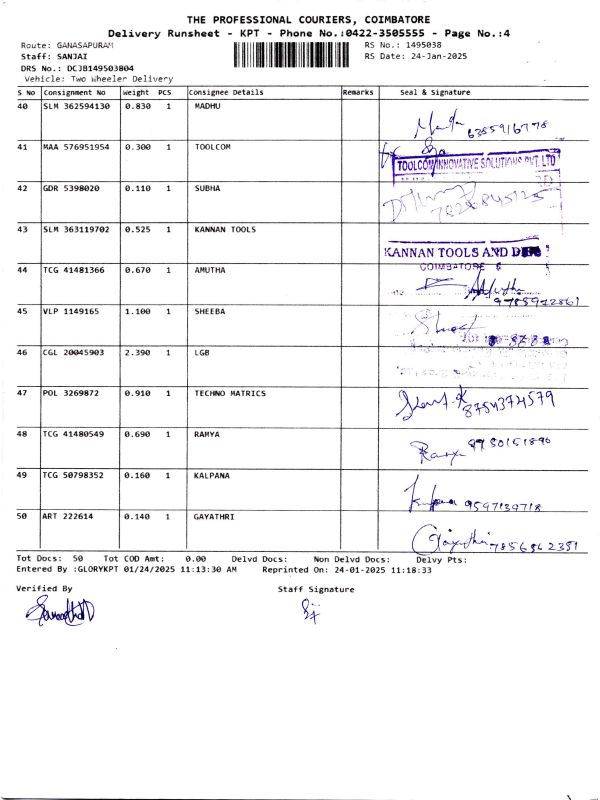 THE PROFESSIONAL COURIERS, COIMBATORE
Delivery Runsheet - KPT - Phone No.:0422-3505555 - Page No.:4
Route: GANASAPURAM
RS No.: 1495038
Staff: SANJAI
RS Date: 24-Jan-2025
DRS No.: DCJB149503804
Vehicle: Two Wheeler Delivery
S No Consignment No weight PCS Consignee Details Remarks Seal & Signature
40 SLM 362594130 0.830 1 MADHU
6385916778
41 MAA 576951954 0.300 1 TOOLCOM
TOOLCOM INNOVATIVE SOLUTIONS PVT. LTD
42 GDR 5398020 0.110 1 SUBHA
43 SLM 363119702 0.525 1 KANNAN TOOLS
KANNAN TOOLS AND
COIMBATORE 6
44 TCG 41481366 0.670 1 AMUTHA
45 VLP 1149165 1.100 1 SHEEBA
46 CGL 20045903 2.390 1 LGB
47 POL 3269872 0.910 1 TECHNO MATRICS
8754374579
48 TCG 41480549 0.690 1 RAMYA
49 TCG 50798352 0.160 1 KALPANA
9597139718
50 ART 222614 0.140 1 GAYATHRI
Gayathri 7856842351
Tot Docs: 50 Tot COD Amt: 0.00 Delvd Docs: Non Delvd Docs: Delvy Pts:
Entered By :GLORYKPT 01/24/2025 11:13:30 AM Reprinted On: 24-01-2025 11:18:33
Verified By Staff Signature